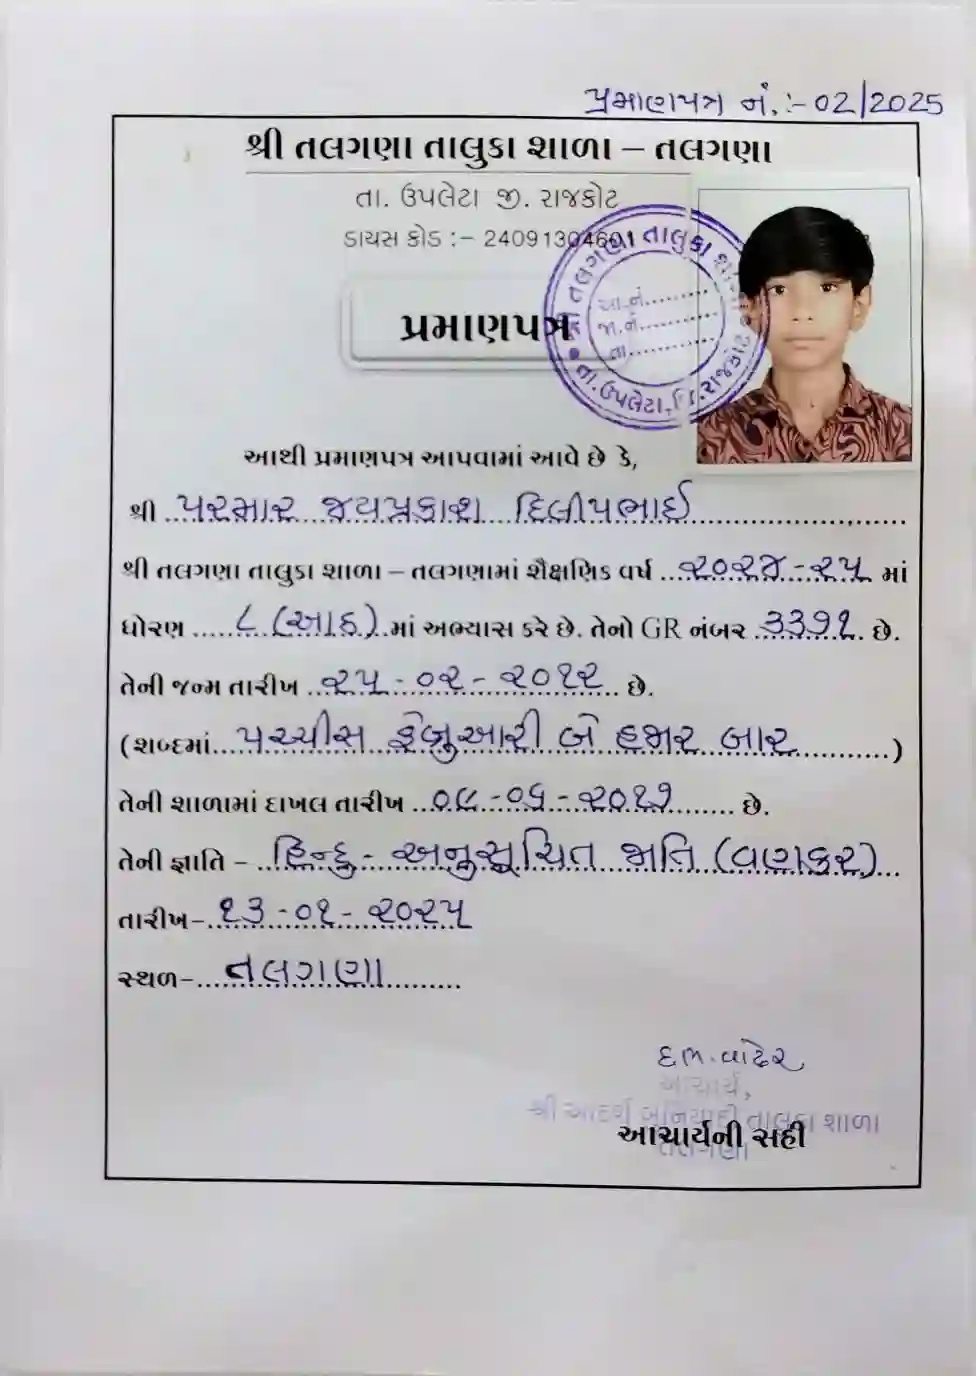 પ્રમાણપત્ર નં.:- 02/2025
શ્રી તલગણા તાલુકા શાળા – તલગણા
તા. ઉપલેટા જી. રાજકોટ
ડાયસ કોડ :- 24091304601
શ્રી તલગણા તાલુકા શાળા
આ.નં..........
જા.નં..........
તા..........
તા.ઉપલેટા, જિ.રાજકોટ
પ્રમાણપત્ર
આથી પ્રમાણપત્ર આપવામાં આવે છે કે,
શ્રી પરમાર જયપ્રકાશ દિલીપભાઈ
શ્રી તલગણા તાલુકા શાળા – તલગણામાં શૈક્ષણિક વર્ષ ૨૦૨૪-૨૫ માં
ધોરણ ૮ (આઠ) માં અભ્યાસ કરે છે. તેનો GR નંબર ૩૩૧૧ છે.
તેની જન્મ તારીખ ૨૫-૦૨-૨૦૧૨ છે.
(શબ્દમાં પચ્ચીસ ફેબ્રુઆરી બે હજાર બાર)
તેની શાળામાં દાખલ તારીખ ૦૮-૦૬-૨૦૧૭ છે.
તેની જ્ઞાતિ – હિન્દુ - અનુસૂચિત જાતિ (વણકર)
તારીખ- ૧૩-૦૧-૨૦૨૫
સ્થળ- તલગણા
આચાર્ય,
શ્રી આદર્શ બુનિયાદી તાલુકા શાળા
તલગણા
આચાર્યની સહી